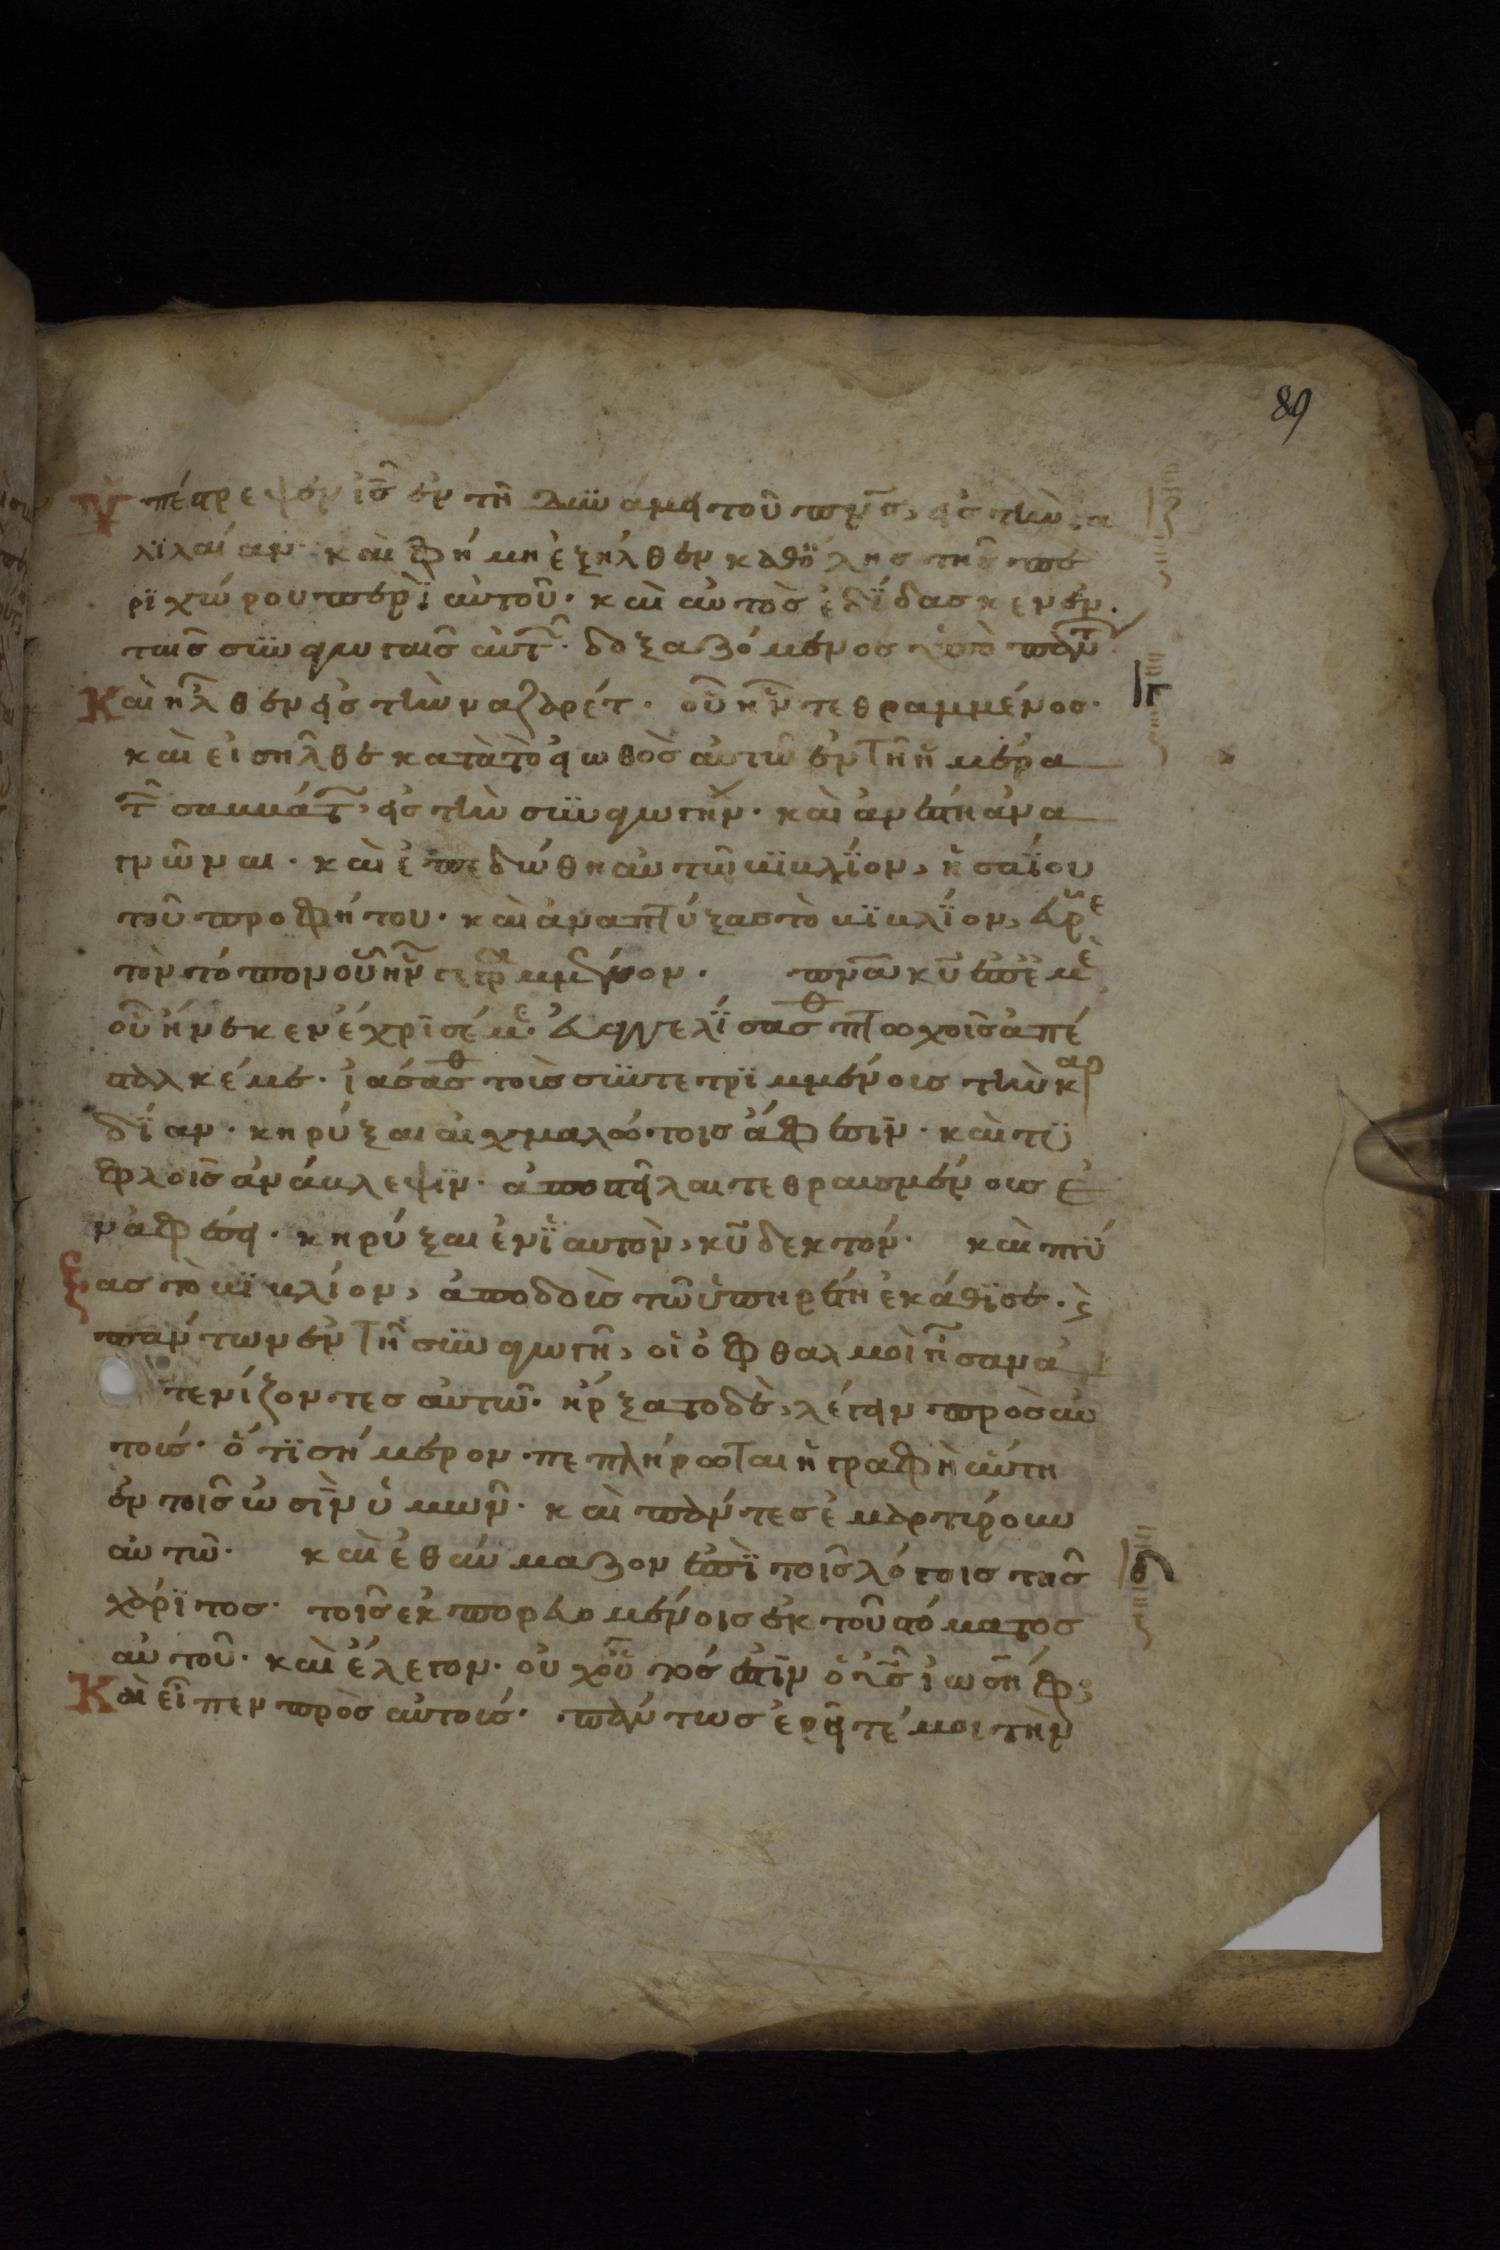 89
Ὑπέστρεψεν ὁ ἰς ἐν τῆ δυνάμει τοῦ πνς, εἰς τὴν γα
λϊλαίαν· καὶ φήμη ἐξῆλθεν καθ' ὅλης τῆς πε
ρϊχώρου περὶ αὐτοῦ· καὶ αὐτὸς ἐδΐδασκεν ἐν
ταῖς συναγωγαῖς αὐτ· δοξαζόμενος ὑπὸ παντ
Καὶ ἦλθεν εἰς τὴν ναζαρέτ· οὗ ἦν τεθραμμένος·
καὶ εἰσῆλθε κατὰ τὸ εἰωθὸς αὐτῶ ἐν τῆ ἡμέρα
τ σαββάτ, εἰς τὴν συναγωγὴν· καὶ ἀνέστη ἀνα
γνῶναι· καὶ ἐπεδώθη αὐτῶ βϊβλΐον, ἡσαΐου
τοῦ προφήτου· καὶ ἀναπτύξας τὸ βϊβλΐον, εὗρε
τὸν τόπον οὗ ἦν γεγραμμένον· πνα κυ ἐπ' ἐμὲ
οὗ ἥνεκεν ἔχρισέ με· εὐαγγελΐσασθ πτωχοῖς ἀπέ
σταλκέ με· ἰάσασθ τοὺς συντετριμμένοις τὴν καρ
δΐαν· κηρύξαι αἰχμαλώτοις ἄφεσιν· καὶ τυ
φλοῖς ἀνάβλεψϊν· ἀποστεῖλαι τεθραυσμένους ἐ
ν ἀφέσει· κηρύξαι ἐνϊαυτὸν, κυ δεκτόν· καὶ πτύ
ξας τὸ βϊβλίον, ἀποδοὺς τῶ ὑπηρέτη ἐκάθϊσε· καὶ
πάντων ἐν τῆ συναγωγῆ, οἱ ὀφθαλμοὶ ἦσαν ἀ
τενίζοντες αὐτῶ· ἤρξατο δὲ, λέγειν πρὸς αὐ
τούς· ὅτϊ σήμερον πεπλήρωται ἡ γραφὴ αὕτη
ἐν τοῖς ὠσὶν ὑμῶν· καὶ πάντες ἐμαρτύρουν
αὐτῶ· καὶ ἐθαύμαζον ἐπὶ τοῖς λόγοις τῆς
χάρϊτος· τοῖς ἐκπορευομένοις ἐκ τοῦ στόματος
αὐτοῦ· καὶ ἔλεγον· οὐχ οὗτός ἐστϊν ὁ υς ἰωσήφ;
Καὶ εἶπεν πρὸς αὐτούς· πάντως ἐρεῖτέ μοι τὴν